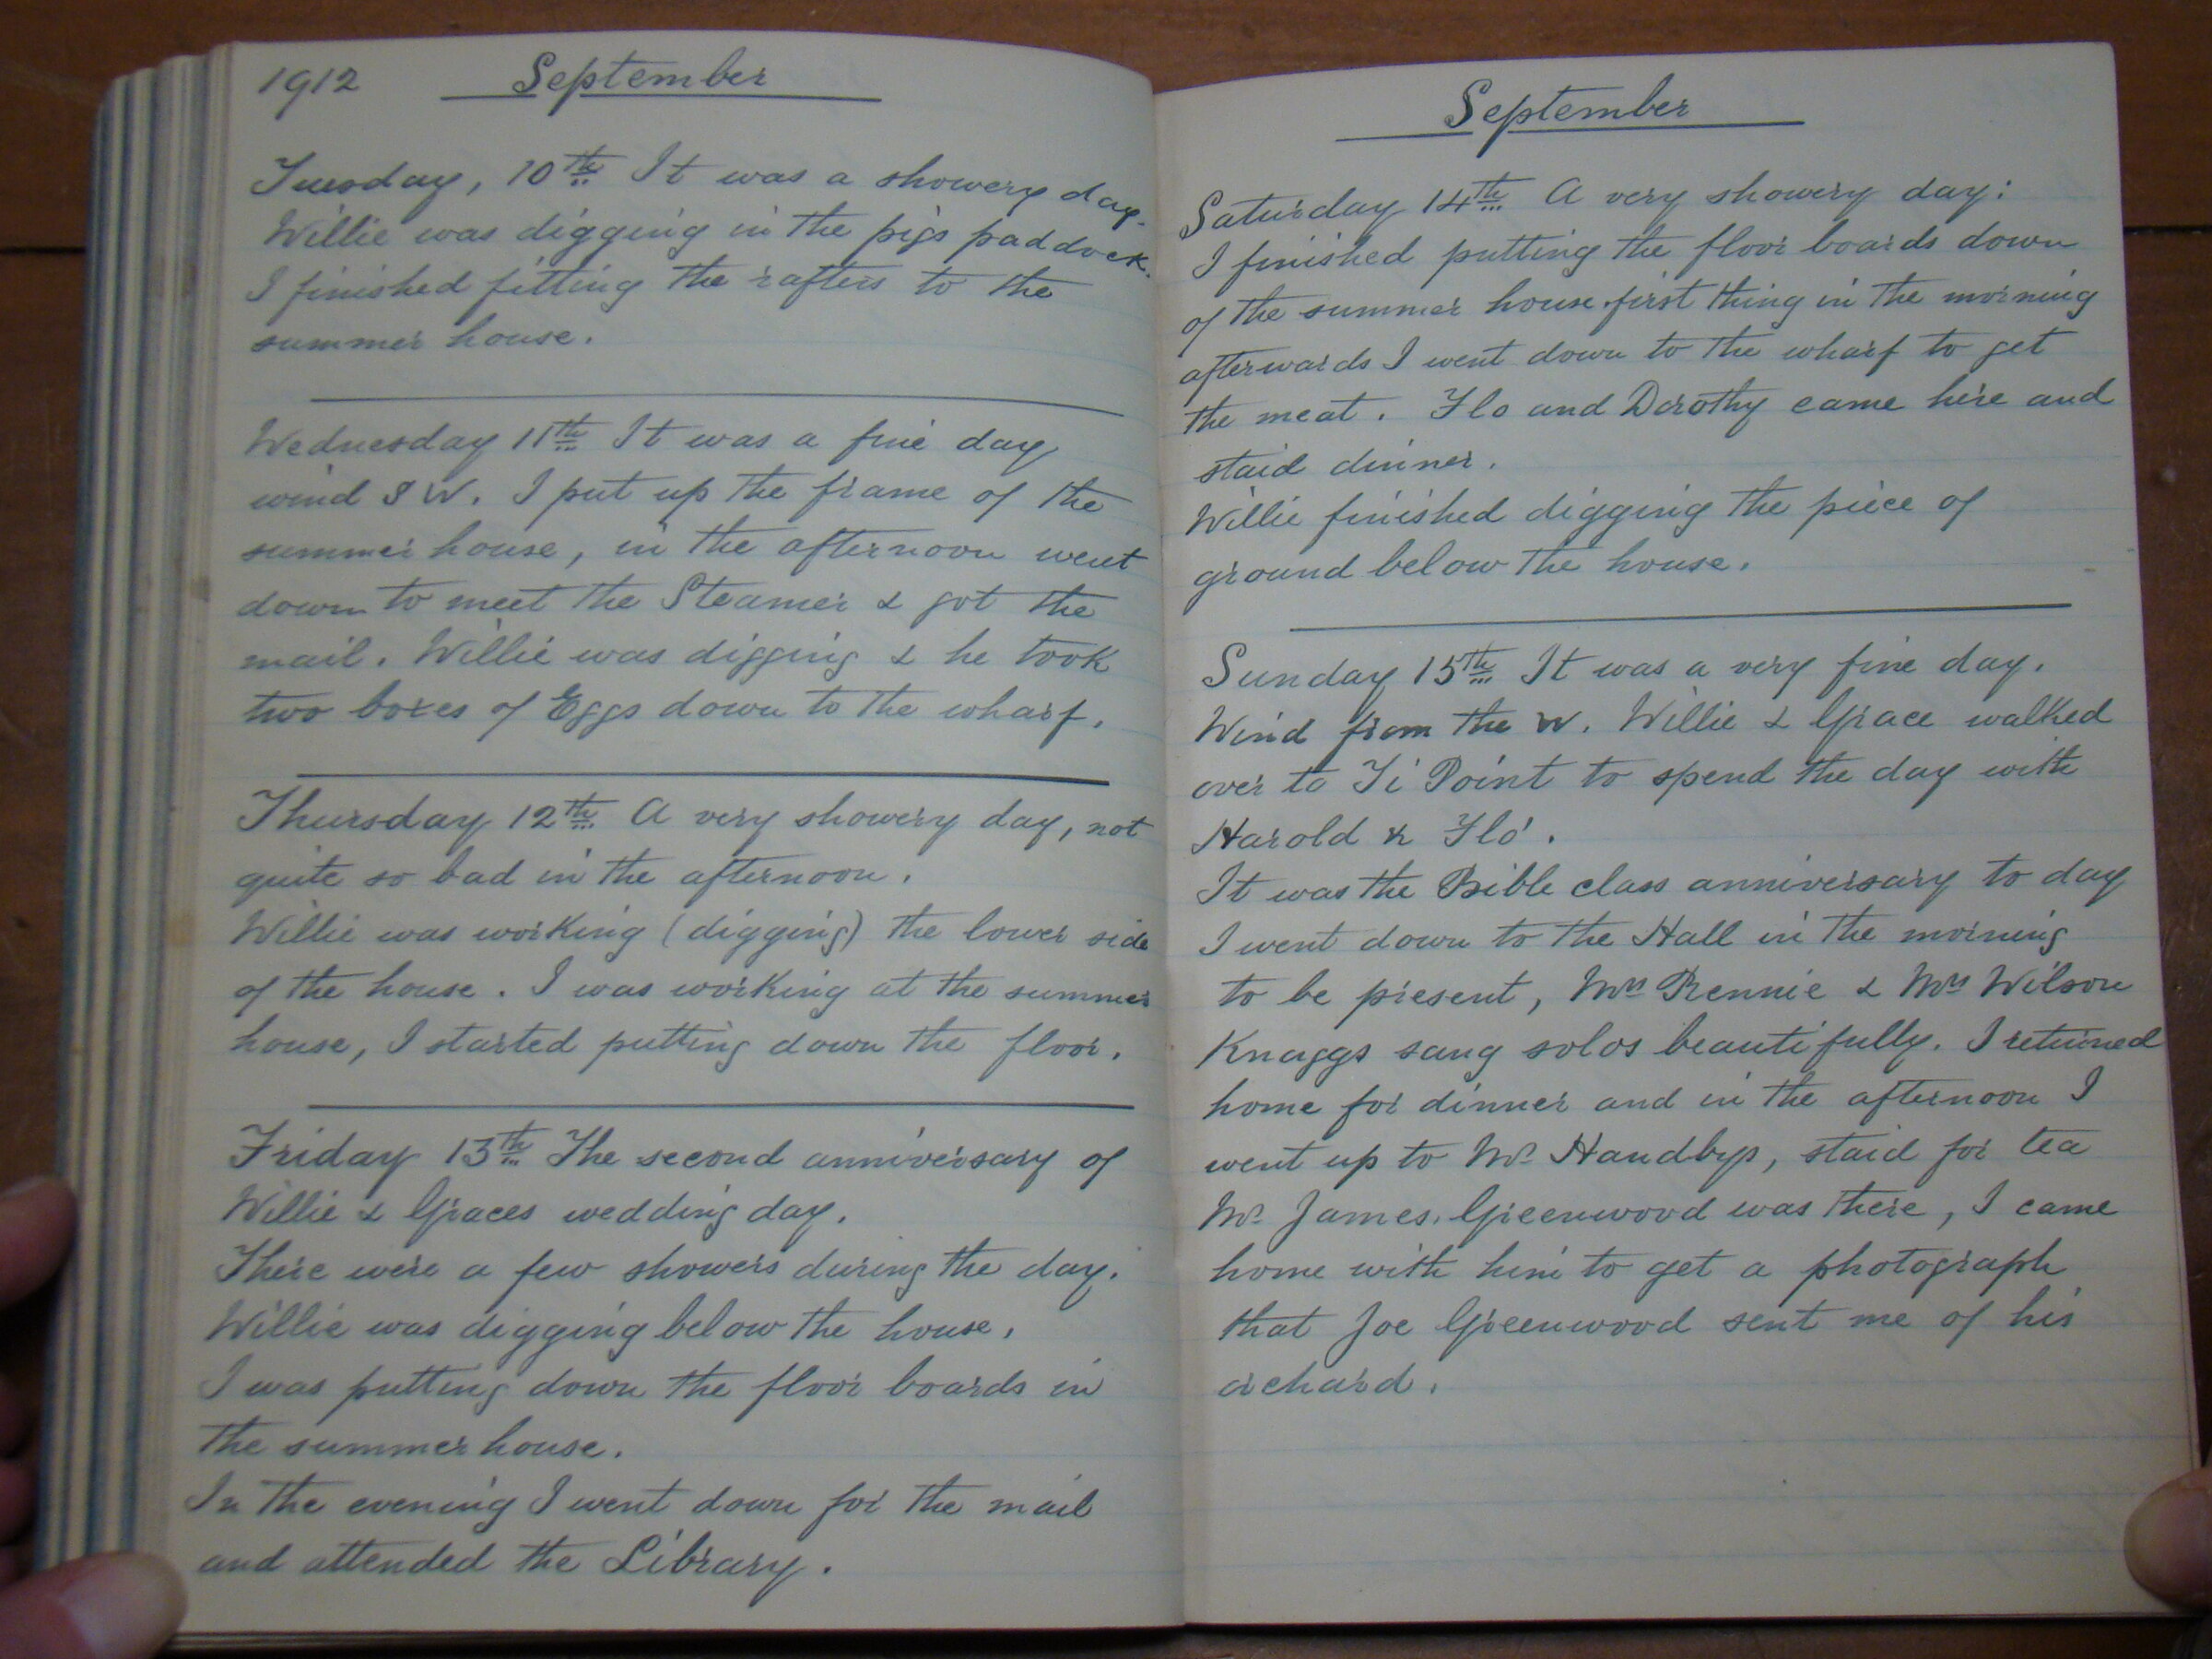 1912 September
Tuesday, 10th It was a showery day.
Willie was digging in the pigs paddock.
I finished fitting the rafters to the
summer house.
Wednesday 11th It was a fine day
wind S W. I put up the frame of the
summer house, in the afternoon went
down to meet the Steamer & got the
mail. Willie was digging & he took
two boxes of Eggs down to the wharf.
Thursday 12th A very showery day, not
quite so bad in the afternoon.
Willie was working (digging) the lower side
of the house. I was working at the summer
house, I started putting down the floor.
Friday 13th The second anniversary of
Willie & Graces wedding day.
There were a few showers during the day.
Willie was digging below the house.
I was putting down the floor boards in
the summer house.
In the evening I went down for the mail
and attended the Library.
September
Saturday 14th A very showery day:
I finished putting the floor boards down
of the summer house first thing in the morning
afterwards I went down to the wharf to get
the meat. Flo and Dorothy came here and
staid dinner.
Willie finished digging the piece of
ground below the house.
Sunday 15th It was a very fine day.
Wind from the W. Willie & Grace walked
over to Ti Point to spend the day with
Harold & Flo.
It was the Bible class anniversary to day
I went down to the Hall in the morning
to be present, Mrs Rennie & Mrs Wilson
Knaggs sang solos beautifully. I returned
home for dinner and in the afternoon I
went up to Mr Handbys, staid for tea
Mr James Greenwood was there, I came
home with him to get a photograph
that Joe Greenwood sent me of his
orchard.